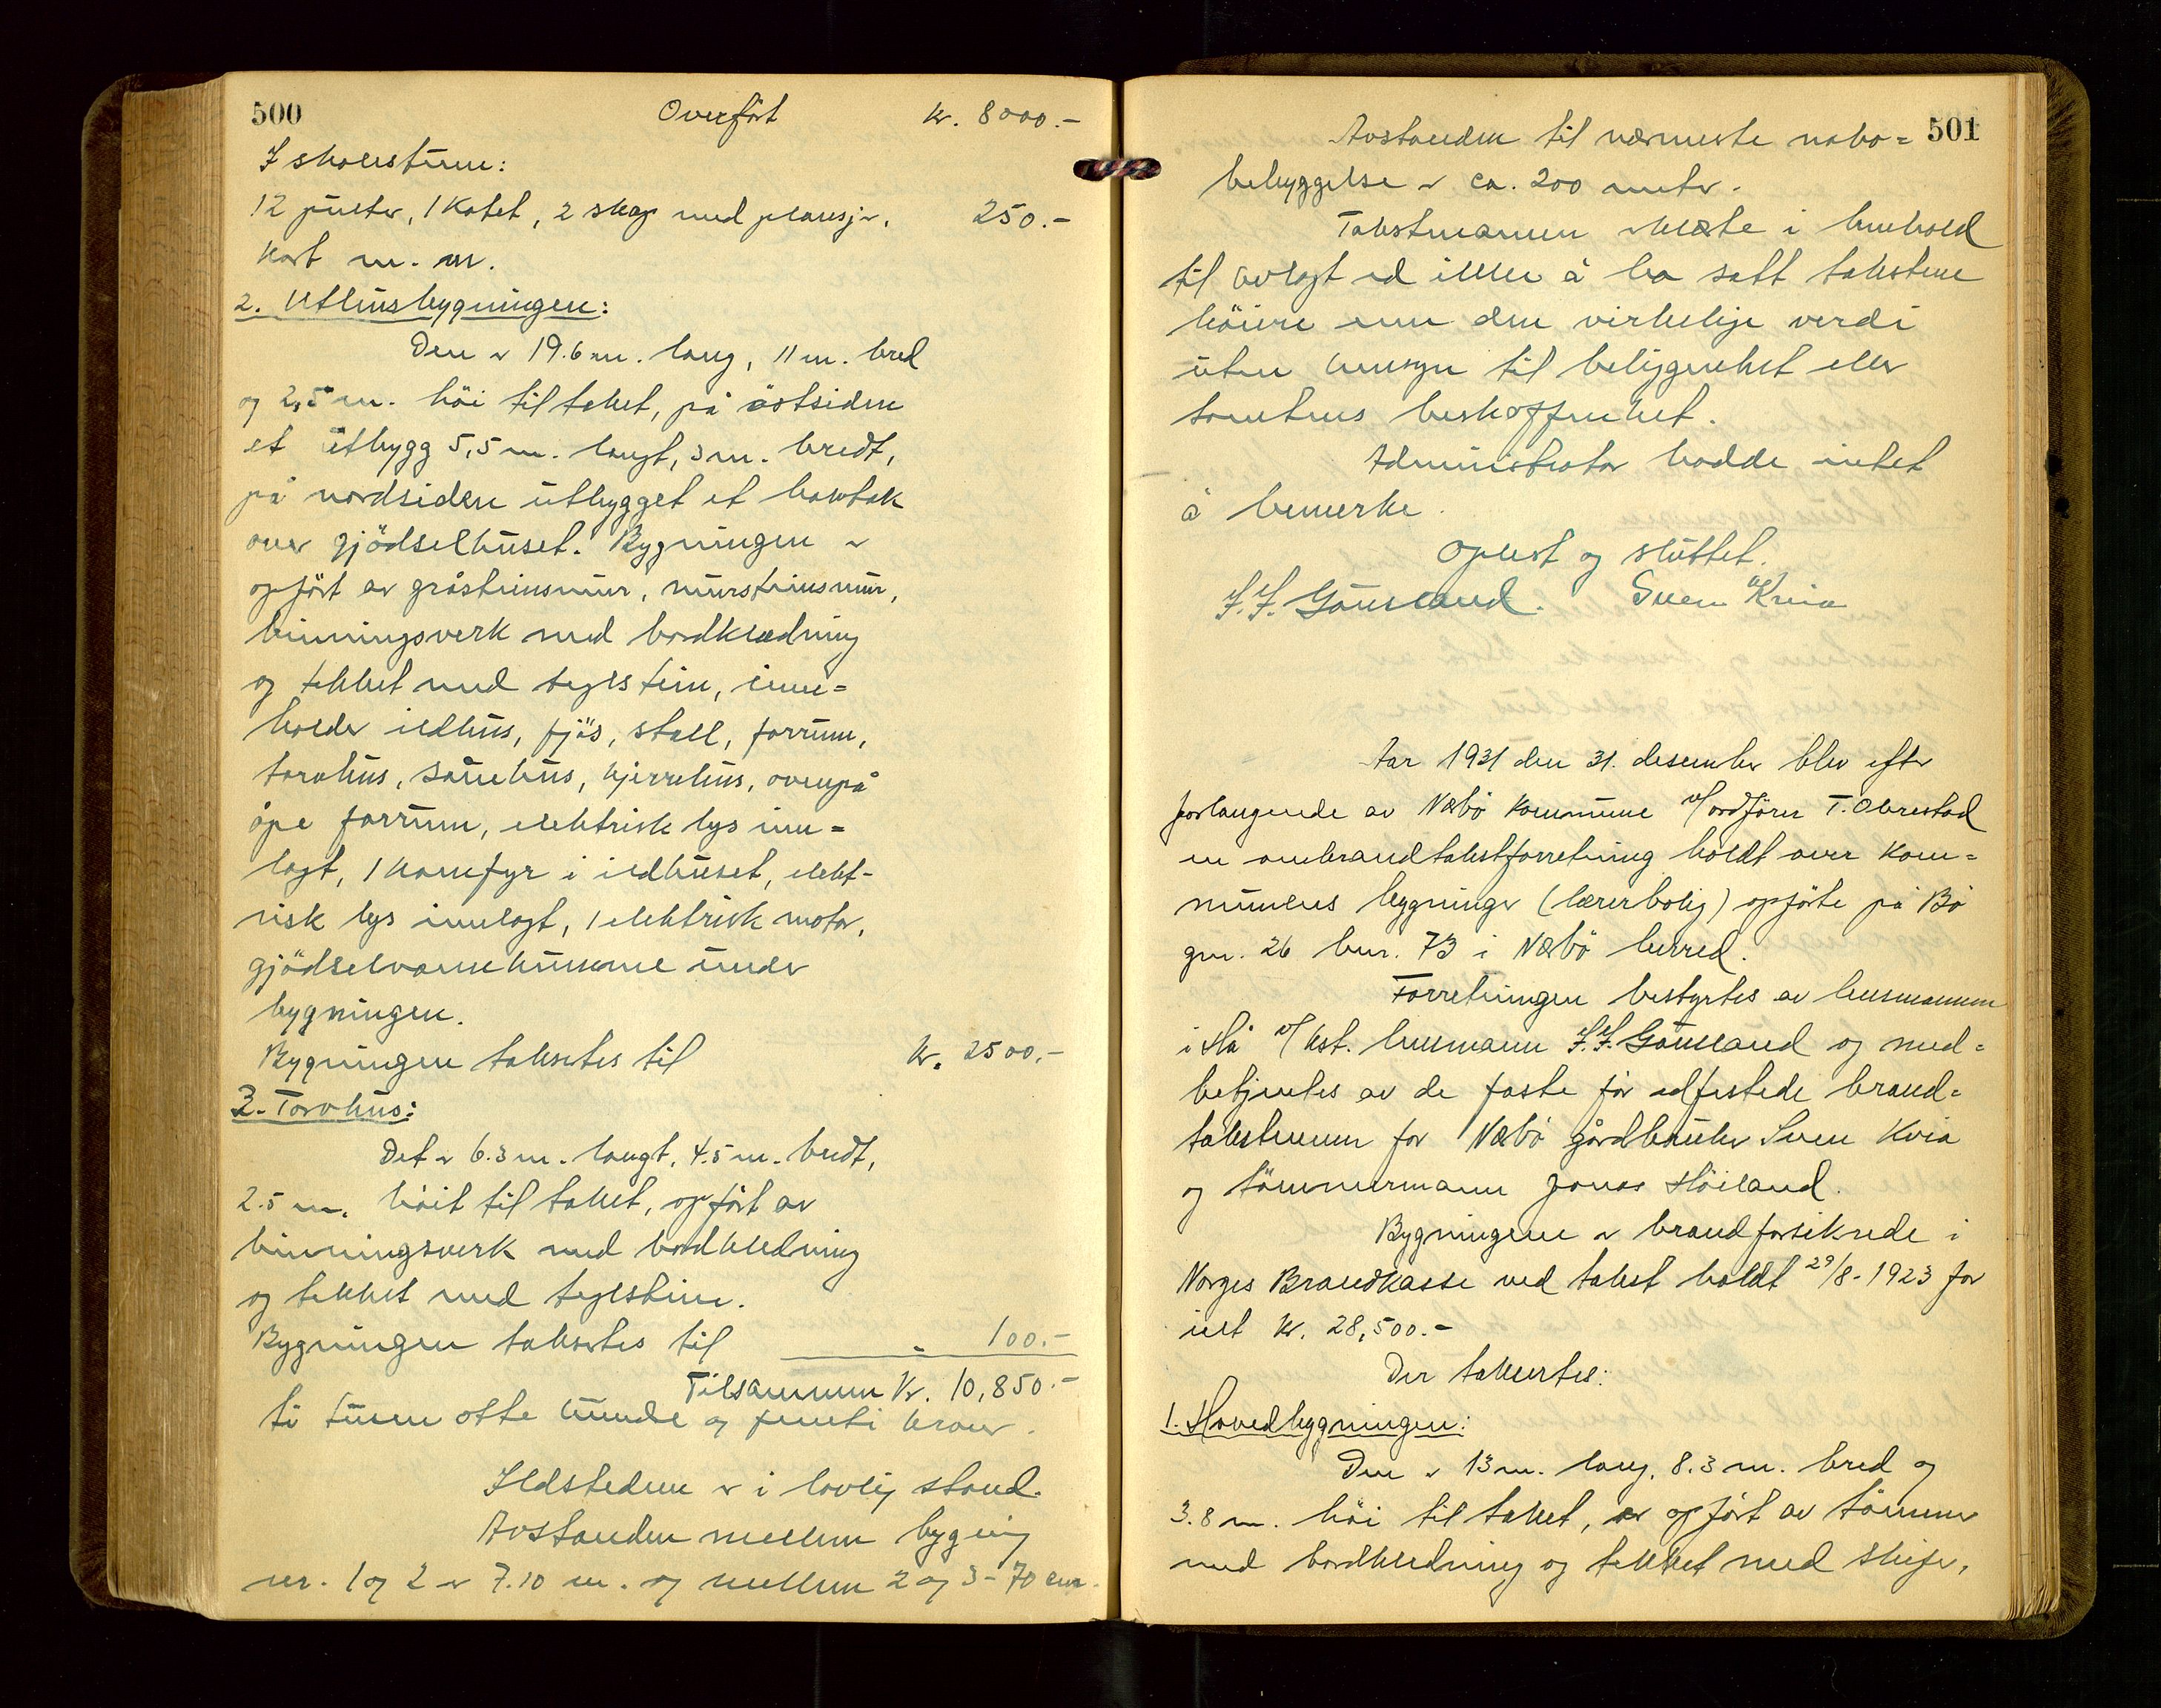 500 Overfört kr. 8000.-
I skolestuen:
12 pulter, 1 Katet, 2 skap med plansjer, 250.-
Kart m. m.
2. Uthusbygningen:
Den er 19.6 m. lang, 11 m. bred
og 2,5 m. höi til taket, på östsiden
et utbygg 5,5 m. langt, 3 m. bredt,
på nordsiden utbygget et halvtak
over gjödselhuset. Bygningen er
opfört av gråsteinsmur, mursteinsmur,
binningsverk med bordklædning
og tekket med teglstein, inne=
holder ildhus, fjös, stall, forrum,
torvhus, sauehus, kjerrehus, ovenpå
åpe forrum, elektrisk lys inn=
lagt, 1 komfyr i ildhuset, elekt-
risk lys innlagt, 1 elektrisk motor,
gjödselvannkumme under
bygningen.
Bygningen takseres til kr. 2500.-
3. Torvhus:
Det er 6.3 m. langt, 4.5 m. bredt,
2.5 m. höit til taket, opfört av
binningsverk med bordkledning
og tekket med teglstein.
Bygningen takseres til " 100.-
Tilsammen Kr. 10,850.-
ti tusen otte hundre og femti kroner.
Ildstedene er i lovlig stand.
Avstanden mellem bygning
nr. 1 og 2 er 7.10 m. og mellem 2 og 3 - 70 cm.
501
Avstanden til nærmeste nabo=
bebyggelse er ca. 200 meter.
Takstmannen erklærte i henhold
til avlagt ed ikke å ha satt takstene
höiere enn den virkelige verdi
uten hensyn til beliggenhet eller
tomtens beskaffenhet.
Administrator hadde intet
å bemerke.
Oplest og sluttet.
J. J. Gausland. Sven Kvia
Aar 1931 den 31. desember blev efter
forlangende av Nærbö kommune v/ ordförer T. Obrestad
en ombrandtakstforretning holdt over kom=
munens bygninger (lærerbolig) opförte på Bö
gnr. 26 bnr. 73 i Nærbö herred.
Forretningen bestyrtes av lensmannen
i Hå v/ kst. lensmann J. J. Gausland og med=
betjentes av de faste før edfestede brand=
takstmenn for Nærbö gårdbruker Sven Kvia
og tömmermann Jonas Höiland.
Bygningene er brandforsikrede i
Norges Brandkasse ved takst holdt 29/8-1923 for
ialt kr. 28,500.-
Der taksertes:
1. Hovedbygningen:
Den er 13 m. lang, 8.3 m. bred og
3.8 m. höi til taket, er opfört av tömmer
med bordkledning og tekket med skifer,